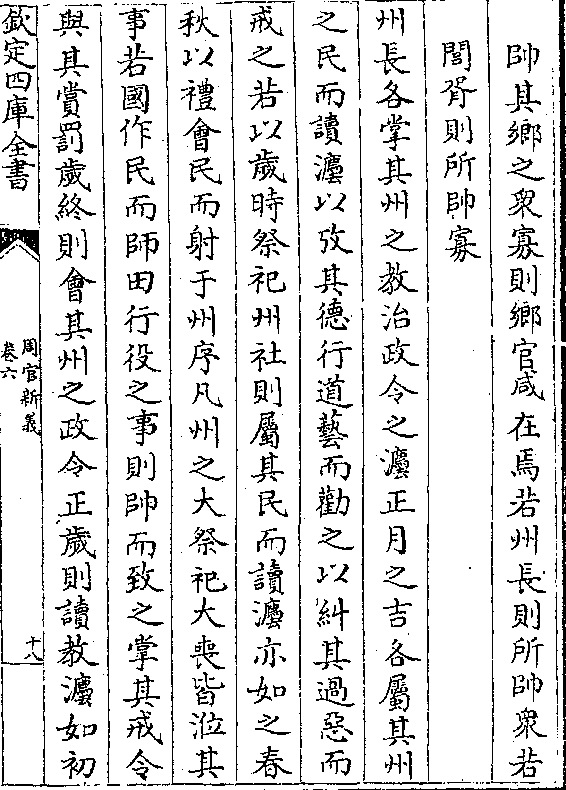 帥其鄉之衆寡則鄉官咸在焉若州長則所帥衆若
閭胥則所帥寡
州長各掌其州之教治政令之灋正月之吉各屬其州
之民而讀灋以攷其德行道藝而勸之以糾其過惡而
戒之若以歲時祭祀州社則屬其民而讀灋亦如之春
秋以禮會民而射于州序凡州之大祭祀大喪皆涖其
事若國作民而師田行役之事則帥而致之掌其戒令
與其賞罰歲終則會其州之政令正歲則讀教灋如初
欽定四庫全書
周官新義
卷六
十八